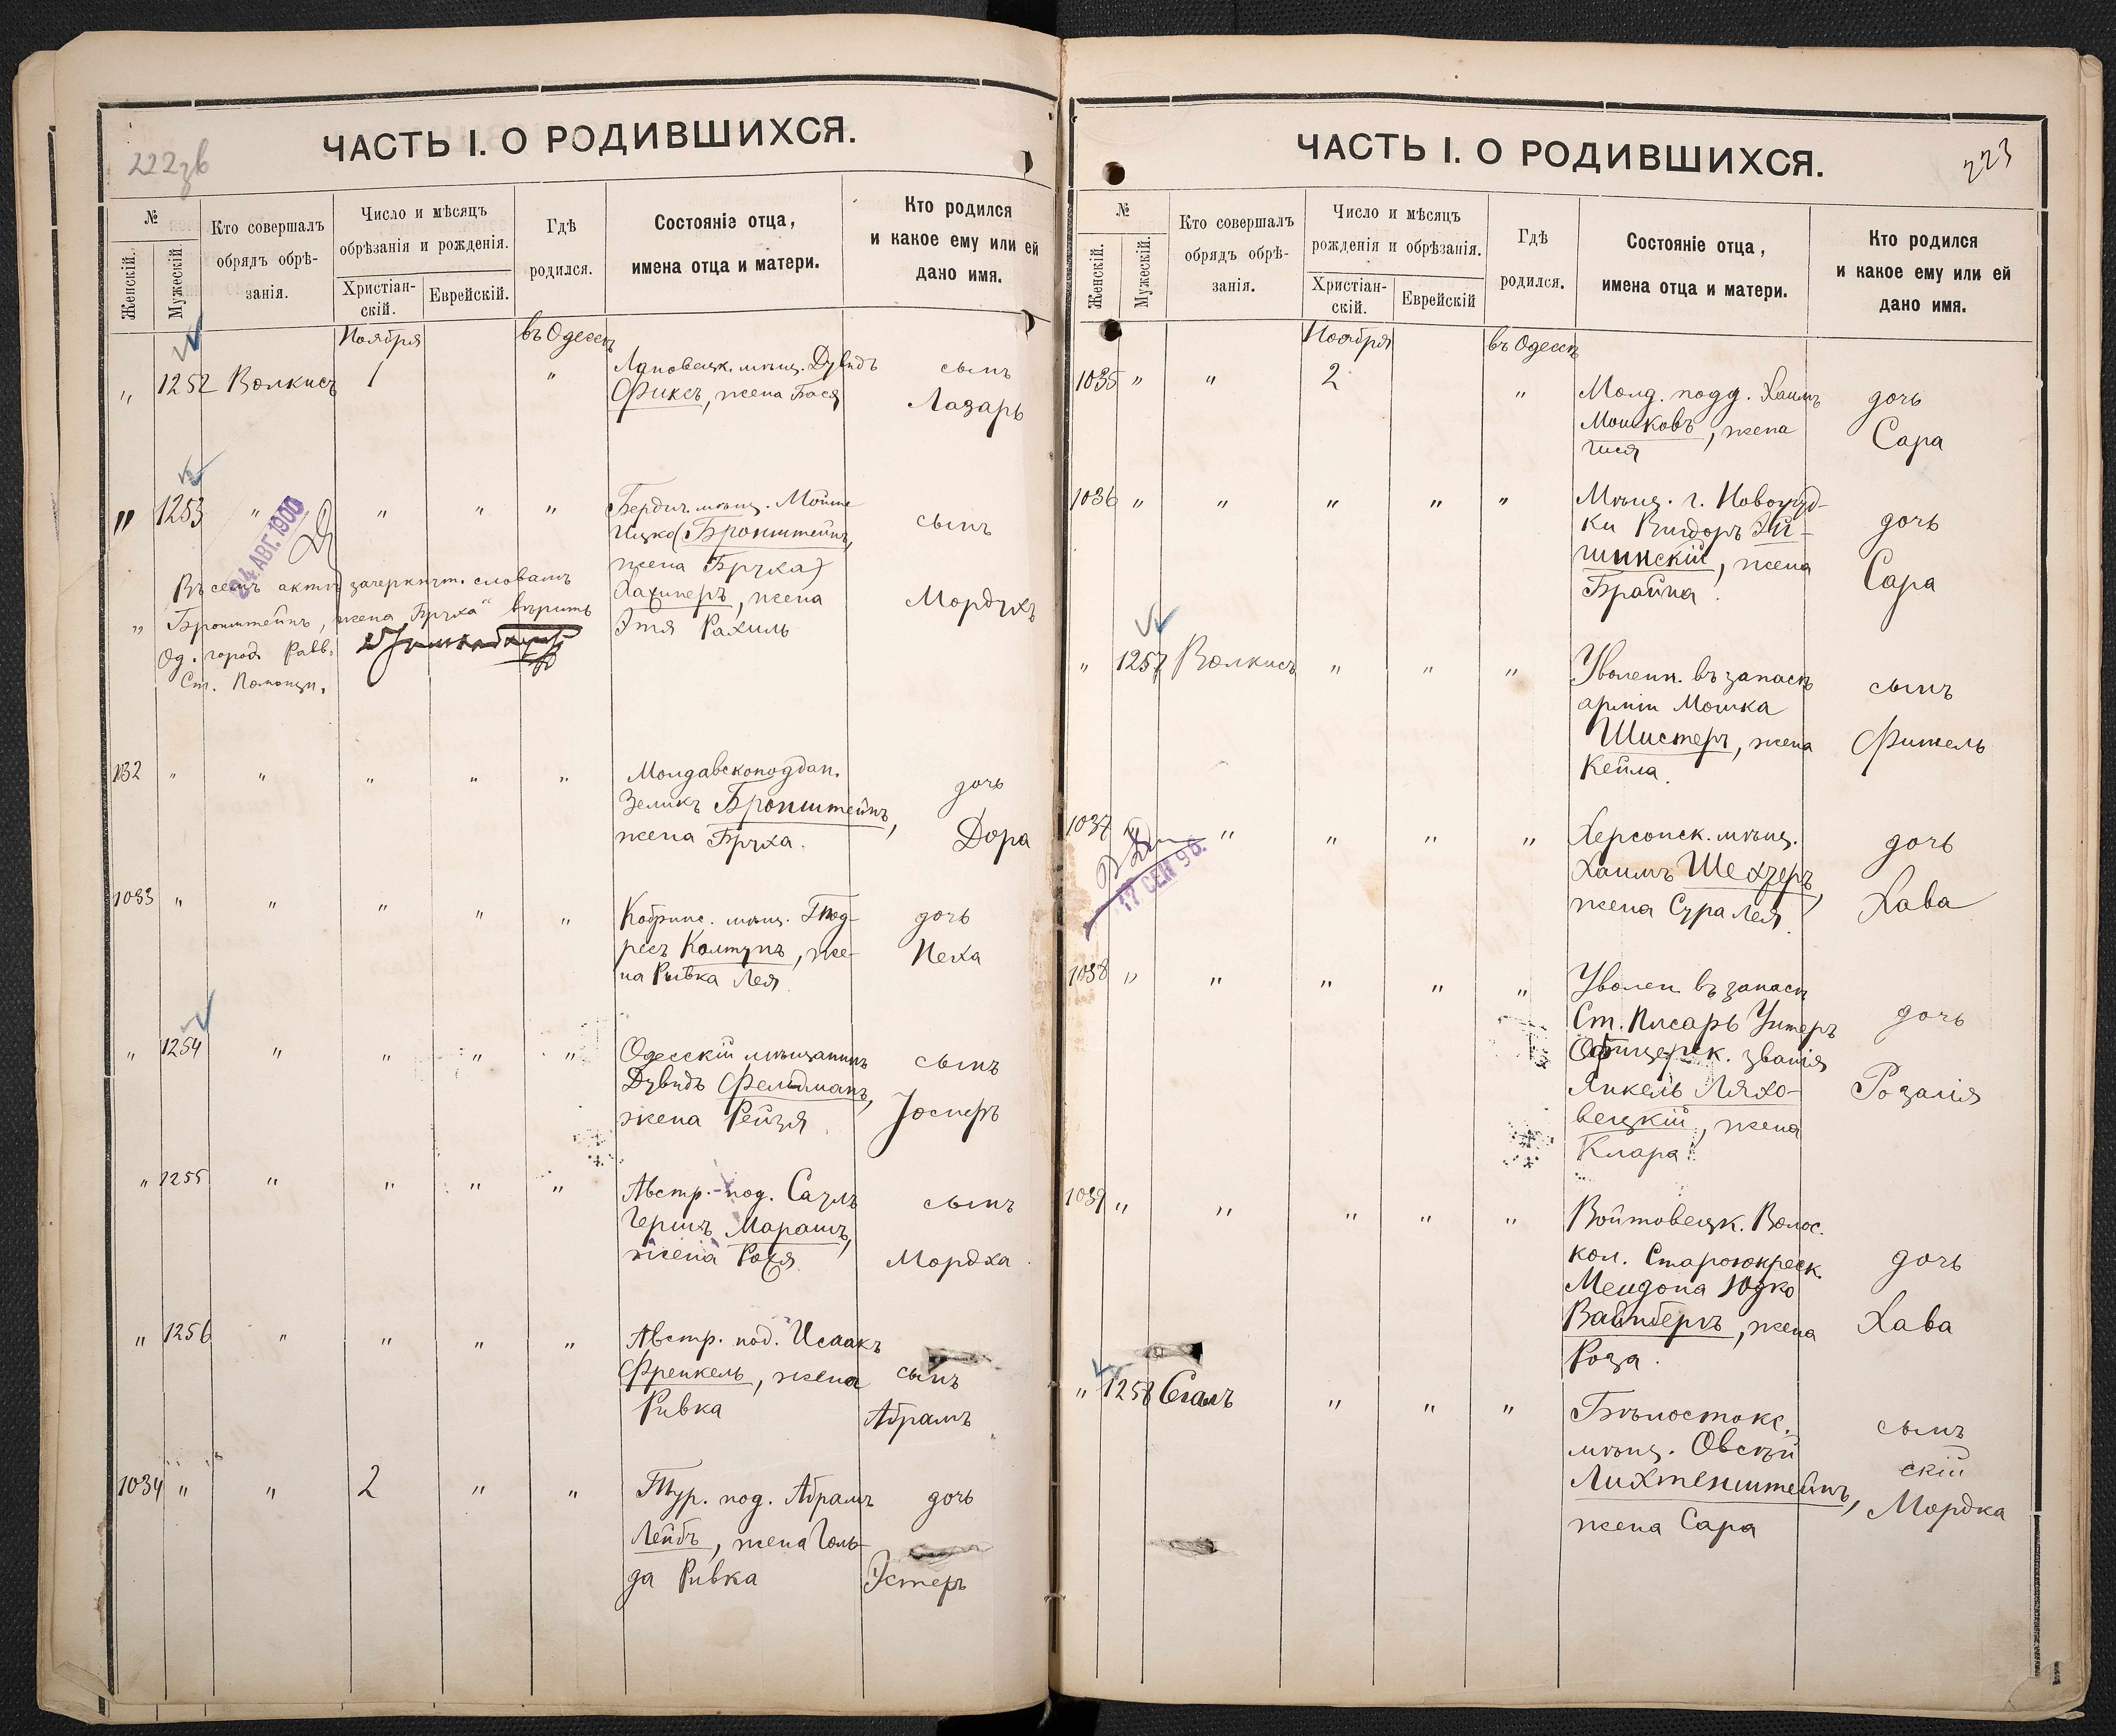 222 зв
ЧАСТЬ I. О РОДИВШИХСЯ.
№
Женскій.
Мужескій.
Кто совершалъ
обрядъ обрѣ-
занія.
Число и мѣсяцъ
обрѣзанія и рожденія.
Христіан-
скій.
Еврейскій.
Гдѣ
родился.
Состояніе отца,
имена отца и матери.
Кто родился
и какое ему или ей
дано имя.
Ноября
въ Одессѣ
" 1252 Волкисъ 1 "
мѣщ. Дувидъ
Фиксъ, жена Бася
сынъ
Лазарь
" 1253 " " " "
24 АВГ. 1900
Бердич. мѣщ. Мойше
Ицко (Бронштейнъ,
жена Бруха)
жена
Этя Рахиль
сынъ
Мордухъ
Въ семъ актѣ зачеркнут. словамъ
" Бронштейнъ, жена Бруха" вѣрить
Од. город. Равв.
Ст. Помощн.
1032 " " " " "
Молдавскоподдан.
Зеликъ Бронштейнъ,
жена Бруха.
дочь
Дора
1033 " " " " "
Кобринс. мѣщ. Тод-
ресъ Колтунъ, же-
на Ривка Лея
дочь
Песа
" 1254 " " " "
Одесскій мѣщанинъ
Дувидъ Фельдманъ,
жена Рейзя
сынъ
Іосифъ
" 1255 " " " "
Австр.-под. Саулъ
Гершъ Марашъ,
жена Рося
сынъ
Мордха
" 1256 " " " "
Австр. под. Исаакъ
Френкель, жена
Ривка
сынъ
Абрамъ
1034 " " 2 " "
Тур. под. Абрамъ
Лейбъ, жена Голь-
да Ривка
дочь
Эстеръ
ЧАСТЬ I. О РОДИВШИХСЯ.
223
№
Женскій.
Мужескій.
Кто совершалъ
обрядъ обрѣ-
занія.
Число и мѣсяцъ
рожденія и обрѣзанія.
Христіан-
скій.
Еврейскій
Гдѣ
родился.
Состояніе отца,
имена отца и матери.
Кто родился
и какое ему или ей
дано имя.
Ноября
въ Одессѣ
1035 " " 2 "
Молд. подд. Хаимъ
Мошковъ, жена
дочь
Сара
1036 " " " " "
Мѣщ. г. Новогруд-
ки
шинскій, жена
Брайна.
дочь
Сара
" 1257 Волкисъ " " "
Уволенн. въ запасъ
арміи Мошка
Шистеръ, жена
Кейла.
сынъ
Фишель
1037 " " " "
17 СЕН 96.
Херсонск. мѣщ.
Хаимъ Шехтеръ,
жена Сура Лея.
дочь
Хава
1038 " " " " "
Уволен въ запасъ
Ст. Писарь Унтеръ
Офицерск. званія
Янкель Ляхо-
вецкій, жена
Клара.
дочь
Розалія
1039 " " " " "
Войтовецк. Волос.
кол.
Юдко
Вайнбергъ, жена
Роза.
дочь
Хава
" 1258 Сегалъ " " "
Бѣлостокс.
мѣщ. Овсѣй
Лихтенштейнъ,
жена Сара
сынъ
скій
Мордка